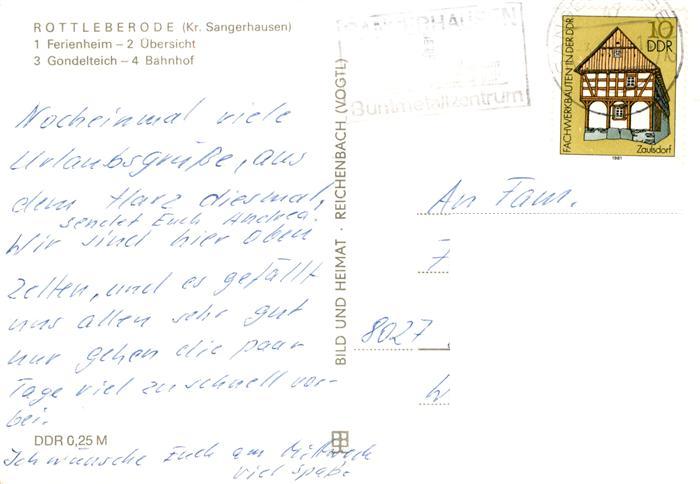 ROTTLEBERODE (Kr. Sangerhausen)
1 Ferienheim – 2 Übersicht
3 Gondelteich – 4 Bahnhof
Nocheinmal viele
Urlaubsgrüße, aus
dem Harz diesmal,
sendet Euch Andrea.
Wir sind hier oben
zelten, und es gefällt
uns allen sehr gut
nur gehen die paar
Tage viel zu schnell vor-
bei.
DDR 0,25 M
Ich wünsche Euch am Mittwoch
viel Spaß.
BILD UND HEIMAT · REICHENBACH (VOGTL)
SANGERHAUSEN
Buntmetallzentrum
10
DDR
FACHWERKBAUTEN IN DER DDR
Zaulsdorf
1981
An Fam.
8027